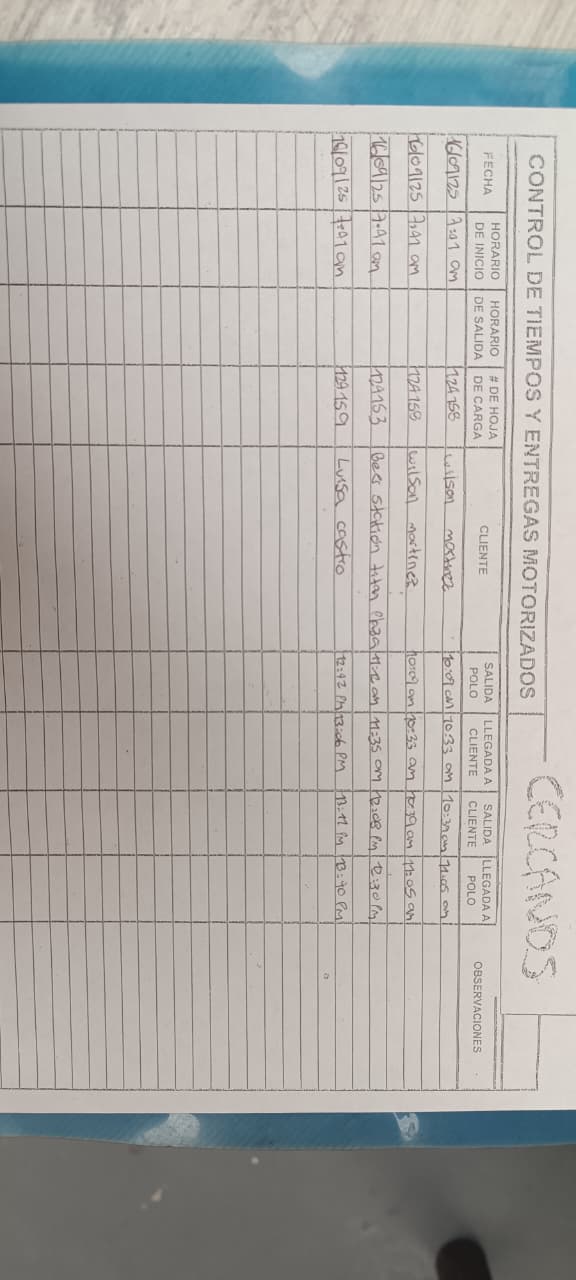 CONTROL DE TIEMPOS Y ENTREGAS MOTORIZADOS CERCANOS
FECHA HORARIO DE INICIO HORARIO DE SALIDA # DE HOJA DE CARGA CLIENTE SALIDA POLO LLEGADA A CLIENTE SALIDA CLIENTE LLEGADA A POLO OBSERVACIONES
16/09/25 7:41 am 124158 wilson martinez 10:09 am 10:33 am 10:39 am 11:05 am
16/09/25 7:41 am 124158 wilson martinez 10:09 am 10:33 am 10:39 am 11:05 am
16/09/25 7:41 am 124153 Beer station titan Plaza 11:12 am 11:35 am 12:08 PM 12:30 PM
16/09/25 7:41 am 124159 Luisa castro 12:42 PM 13:06 PM 13:11 PM 13:40 PM